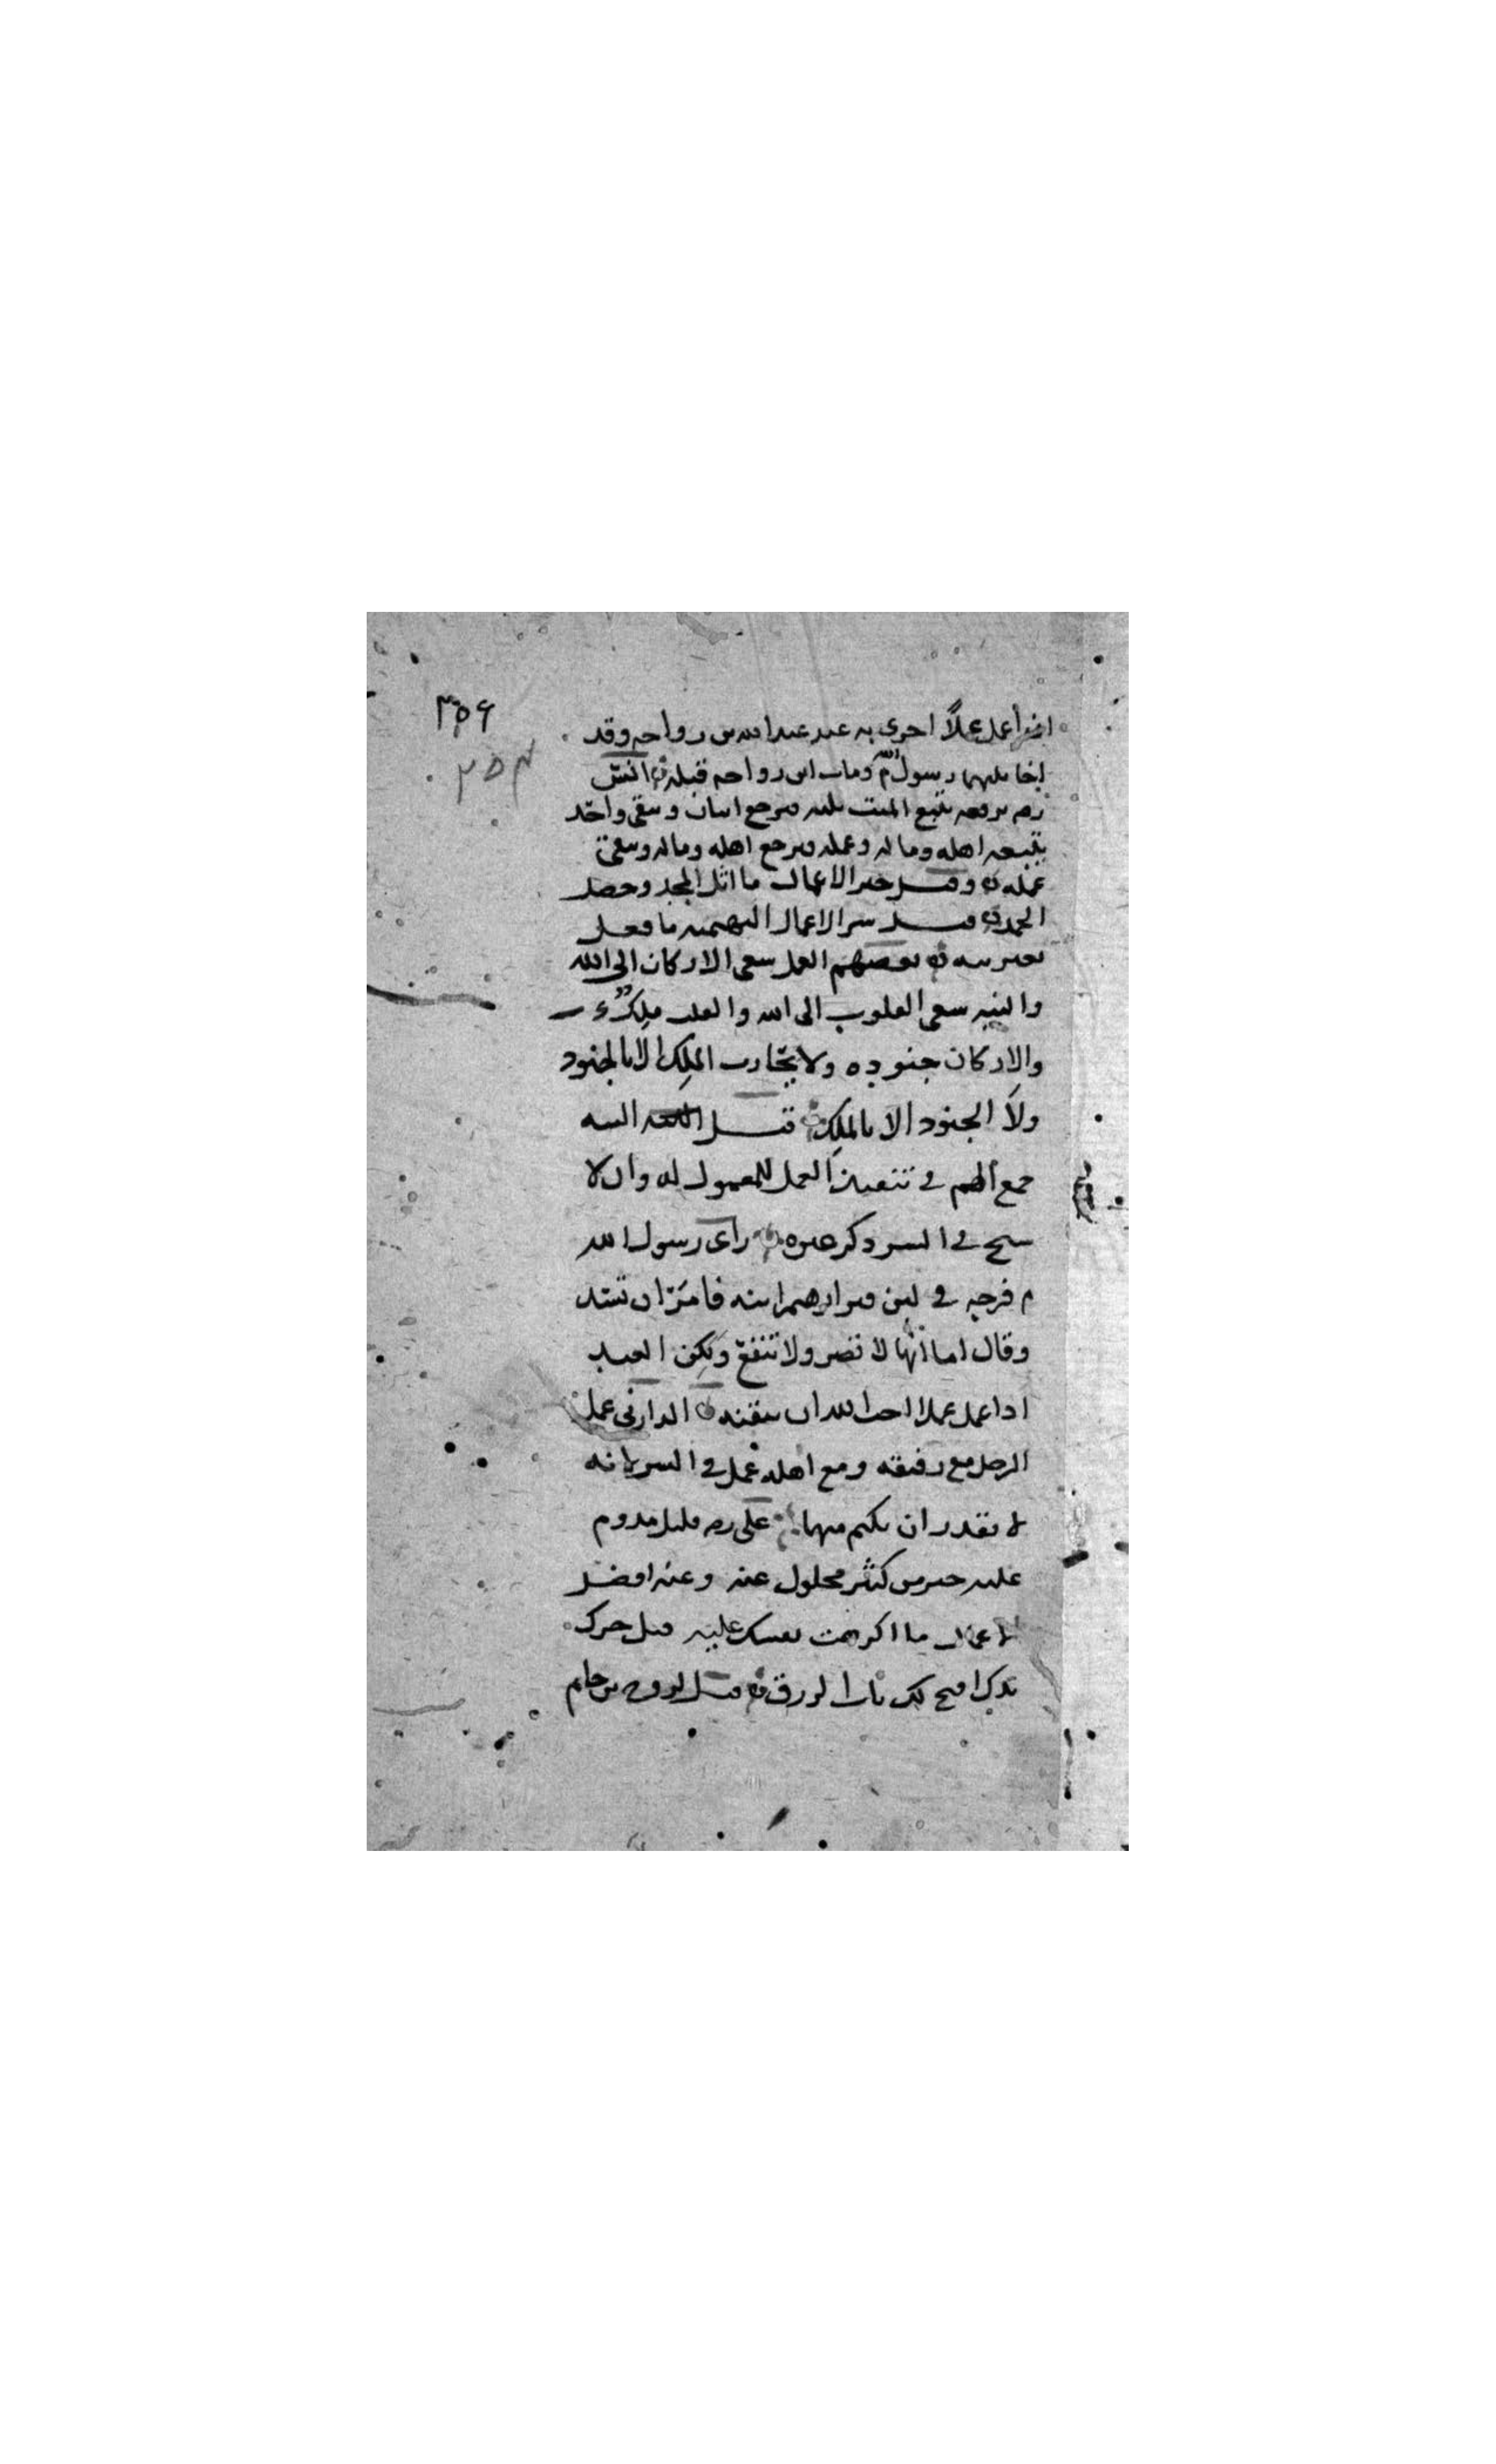 ٣٥٤
٢٥٣
ان أعمل عملاً اخزى به عند عبد الله بن رواحه وقد
اخا بينهما رسول الله م ومات ابن رواحه قبله انس
رضه يرفعه يتبع الميت ثلثه فيرجع اثنان ويبقى واحد
يتبعه اهله وماله وعمله فيرجع اهله وماله ويبقى
عمله وقيل خير الاعمال ما اثل المجد وحصل
الحمد قيل شر الاعمال البهيميه ما فعل
بغير نيه بعضهم العمل سعى الاركان الى الله
والنيه سعى القلوب الى الله والقلب ملك
والاركان جنوده ولا يحارب الملك الا بالجنود
ولا الجنود الا بالملك قيل النيه
جمع الهم في تنفيذ العمل للمعمول له وان لا
يسنح في السر ذكر غيره رأى رسول الله
م فرجه في لبن قبر ابرهيم ابنه فامر ان تسد
وقال اما انها لا تضر ولا تنفع ولكن العبد
اذا عمل عملا احب الله ان يتقنه الدارنى عمل
الرجل مع رفيقه ومع اهله عمل في السر لانه
لا يقدر ان يكتم منها على رضه قليل مدوم
عليه خير من كثير مملول عنه وعنه افضل
الاعمال ما اكرهت نفسك عليه قيل حرك
يدك افتح لك باب الرزق قيل لروح بن حاتم